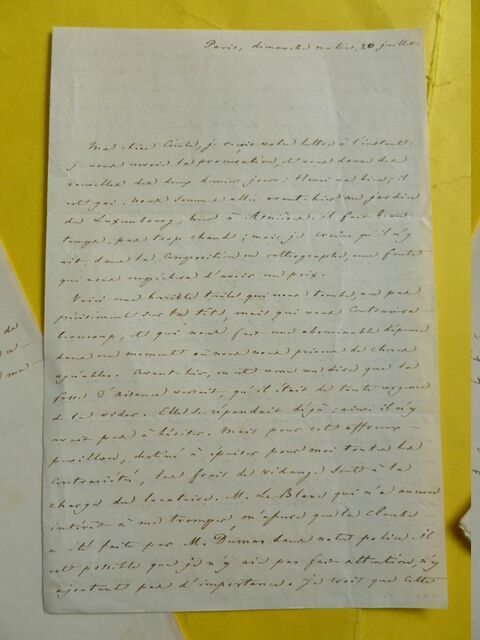 Paris, dimanche matin, 20 juillet.
Ma chère Cécile, je reçois votre lettre à l'instant;
je vous envoie la procuration, et vous donne des
nouvelles des deux derniers jours: Henri va bien; il
est gai: nous sommes allés avant-hier au jardin
du Luxembourg, hier à Asnières. il fait beau
temps, pas trop chaud; mais je crains qu'il n'y
ait dans la composition en orthographe, une faute
qui nous empêchera d'avoir un prix.
Voici une horrible tuile qui nous tombe, non pas
précisément sur la tête, mais qui nous contrarie
beaucoup, et qui nous fait une abominable dépense
dans un moment où nous nous privons de choses
agréables. Avant-hier, on est venu me dire que la
fosse d'aisance versait, qu'il était de toute urgence
de la vider. Elle se répandait déjà; ainsi il n'y
avait pas à hésiter. Mais pour cet affreux
pavillon, destiné à épuiser pour moi toutes les
contrariétés, les frais de vidange sont à la
charge du locataire. M. Le Blanc qui n'a aucun
intérêt à me tromper, m'assure que la clause
a été faite par M. Dumas dans notre police. il
est possible que je n'y aie pas fait attention, n'y
ajoutant pas d'importance. Je crois que cette